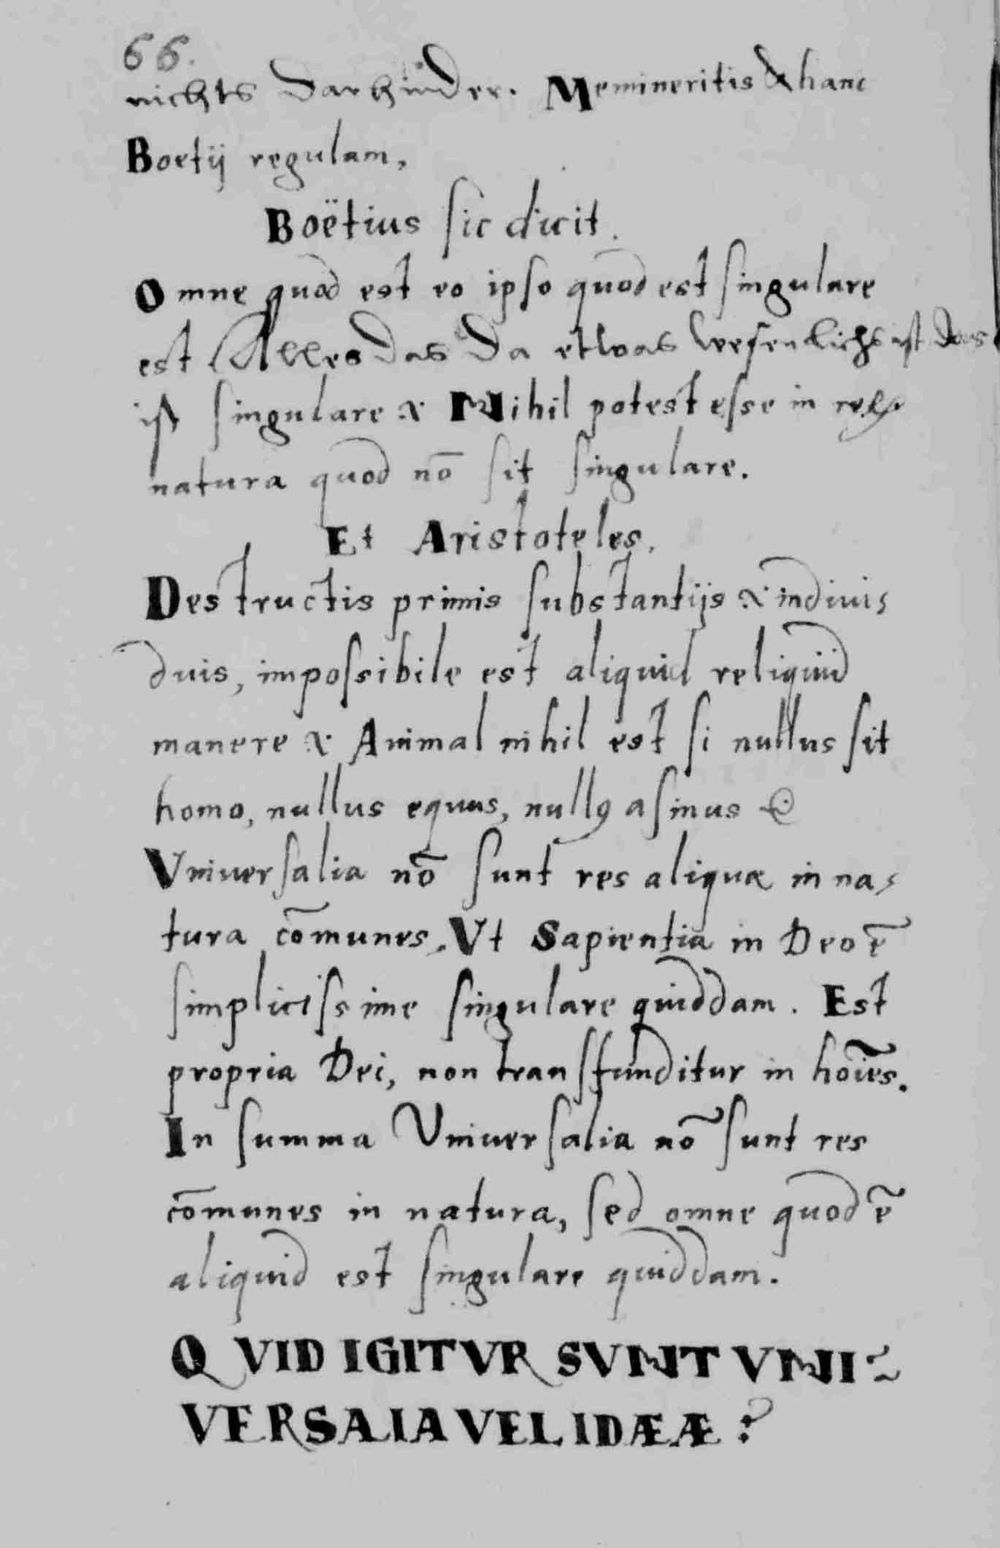 66.
nichts darhinder. Memineritis & hanc
Boetij regulam,
Boëtius sic dicit.
Omne quod est eo ipso quod est singulare
est Alles das da etwas wesenlichs ist das
ist singulare & Nihil potest esse in
natura quod nō sit singulare.
Et Aristoteles.
Destructis primis substantijs & indiui⸗
duis, impossibile est aliquid reliquid
manere & Animal nihil est si nullus sit
homo, nullus equus, nullꝰ asinus
Vniuersalia nō sunt res aliquæ in na⸗
tura cōmunes, Vt Sapientia in Deo ē
simplicissime singulare quiddam. Est
propria Dei, non transfunditur in hoīes.
In summa Vniuersalia nō sunt res
cōmunes in natura, sed omne quod ē
aliquid est singulare quiddam.
QVID IGITVR SVNT VNI⸗
VERSAIA VEL IDÆÆ?